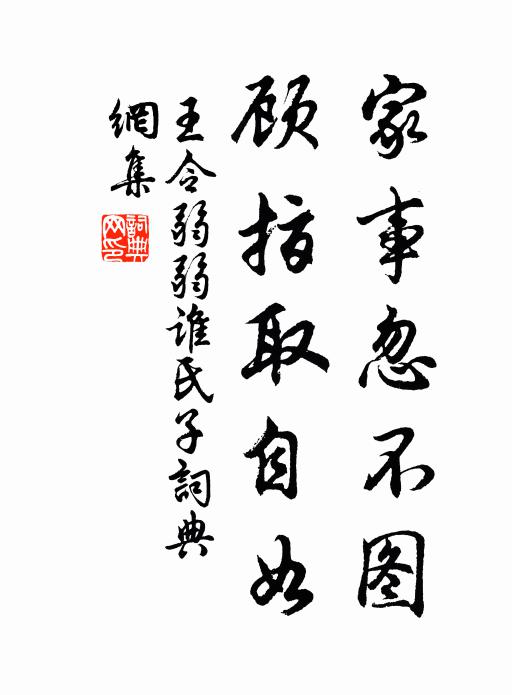 家事忽不图
顾指取自如
王令弱弱谁氏子詞典
網集
詞典
网印